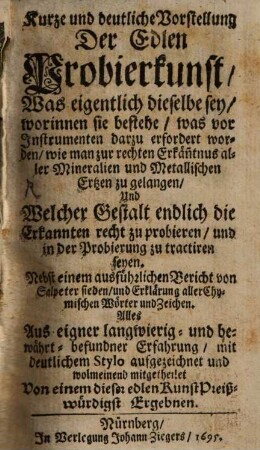 Kurze und deutliche Vorstellung
Der Edlen
Probierkunst/
Was eigentlich dieselbe sey/
worinnen sie bestehe/ was vor
Instrumenten darzu erfordert wor-
den/ wie man zur rechten Erkäñtnus al-
ler Mineralien und Metallischen
Ertzen zu gelangen/
Und
Welcher Gestalt endlich die
Erkannten recht zu probieren/ und
in der Probierung zu tractiren
seyen.
Nebst einem ausführlichen Bericht von
Salpeter sieden/ und Erklärung aller Chy-
mischen Wörter und Zeichen.
Alles
Aus eigner langwierig- und be-
währt- befundner Erfahrung/ mit
deutlichem Stylo aufgezeichnet und
wolmeinend mitgetheilet
Von einem dieser edlen Kunst Preiß-
würdigst Ergebnen.
Nürnberg/
In Verlegung Johann Ziegers/ 1695.